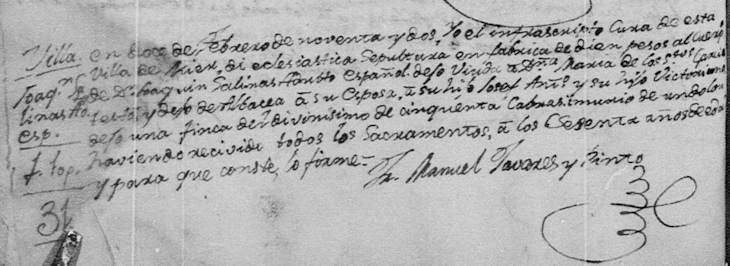 Villa. en doce de Febrero de noventa y dos, Yo el infrascripto Cura de esta
Joaqn. Villa de Mier, di eclesiastica Sepultura en fabrica de diez pesos al Cuerpo
de Dn. Joaquin Salinas Español dejo Viuda a Dña Maria de los Stos
esp. y dejo de Albacea â su Esposa, â su hijo Josef Anto. y su hijo Victoriano
dejo una finca del divinisimo de cinquenta Cabras murio de un dolor
haviendo recivido todos los Sacramentos, â los Cesenta años de edad
y para que conste, lo firme=
Fr. Manuel Tavares y Pinto
31